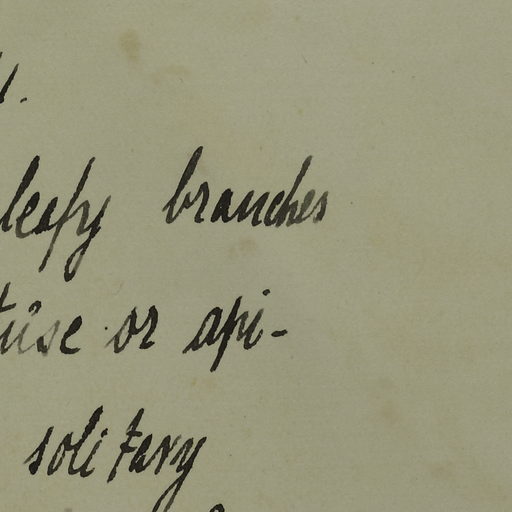 leafy branches
or api-
solitary